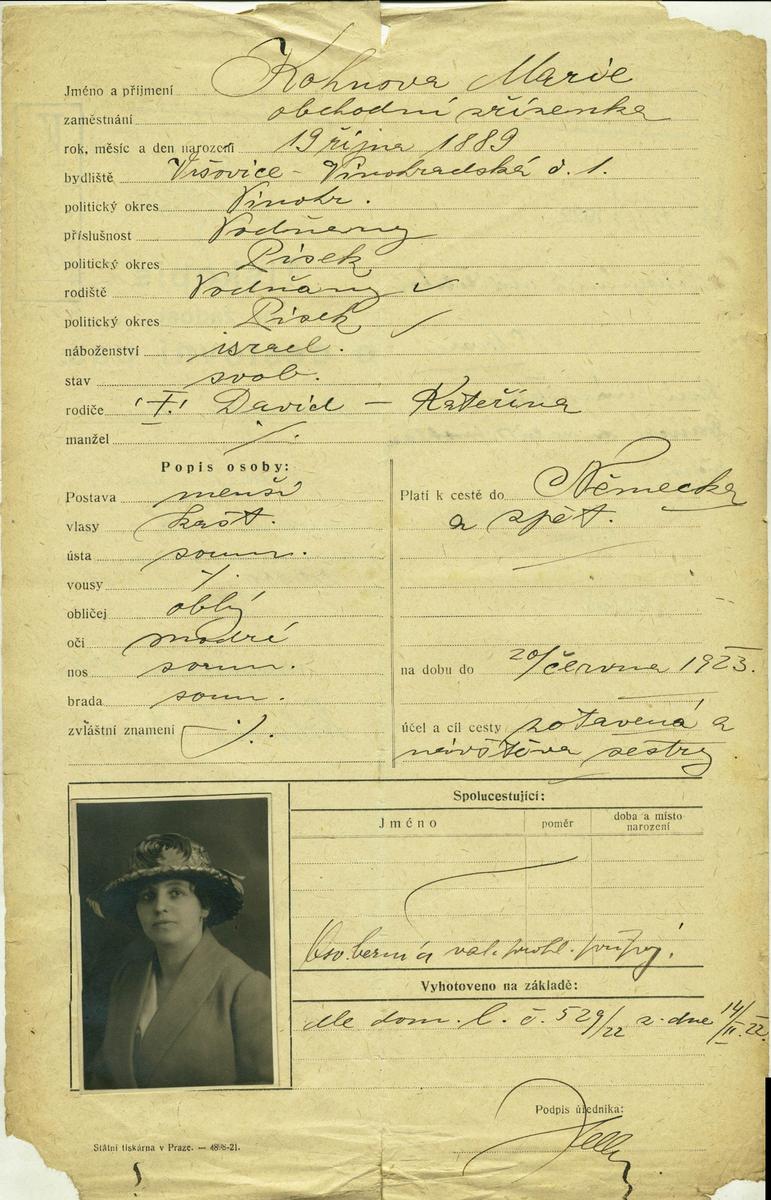 Jméno a příjmení Kohnova Marie
zaměstnání obchodní zřízenka
rok, měsíc a den narození 19 října 1889
bydliště Vršovice - Vinohradská č. 1.
politický okres Vinohr.
příslušnost Vodňany
politický okres Písek
rodiště Vodňany
politický okres Písek
náboženství israel.
stav svob.
rodiče David - Kateřina
manžel ·/.
Popis osoby:
Postava menší
vlasy kašt.
ústa soum.
vousy ·/.
obličej oblý
oči modré
nos soum.
brada soum.
zvláštní znamení ·/.
Platí k cestě do Německa
a zpět.
na dobu do 20/června 1923.
účel a cíl cesty zotavená a
návštěva sestry
Spolucestující:
Jméno poměr doba a místo narození
Vyhotoveno na základě:
dle dom. l. č. 529/22 z dne 14/II. 22.
Podpis úředníka:
Státní tiskárna v Praze. — 4898-21.